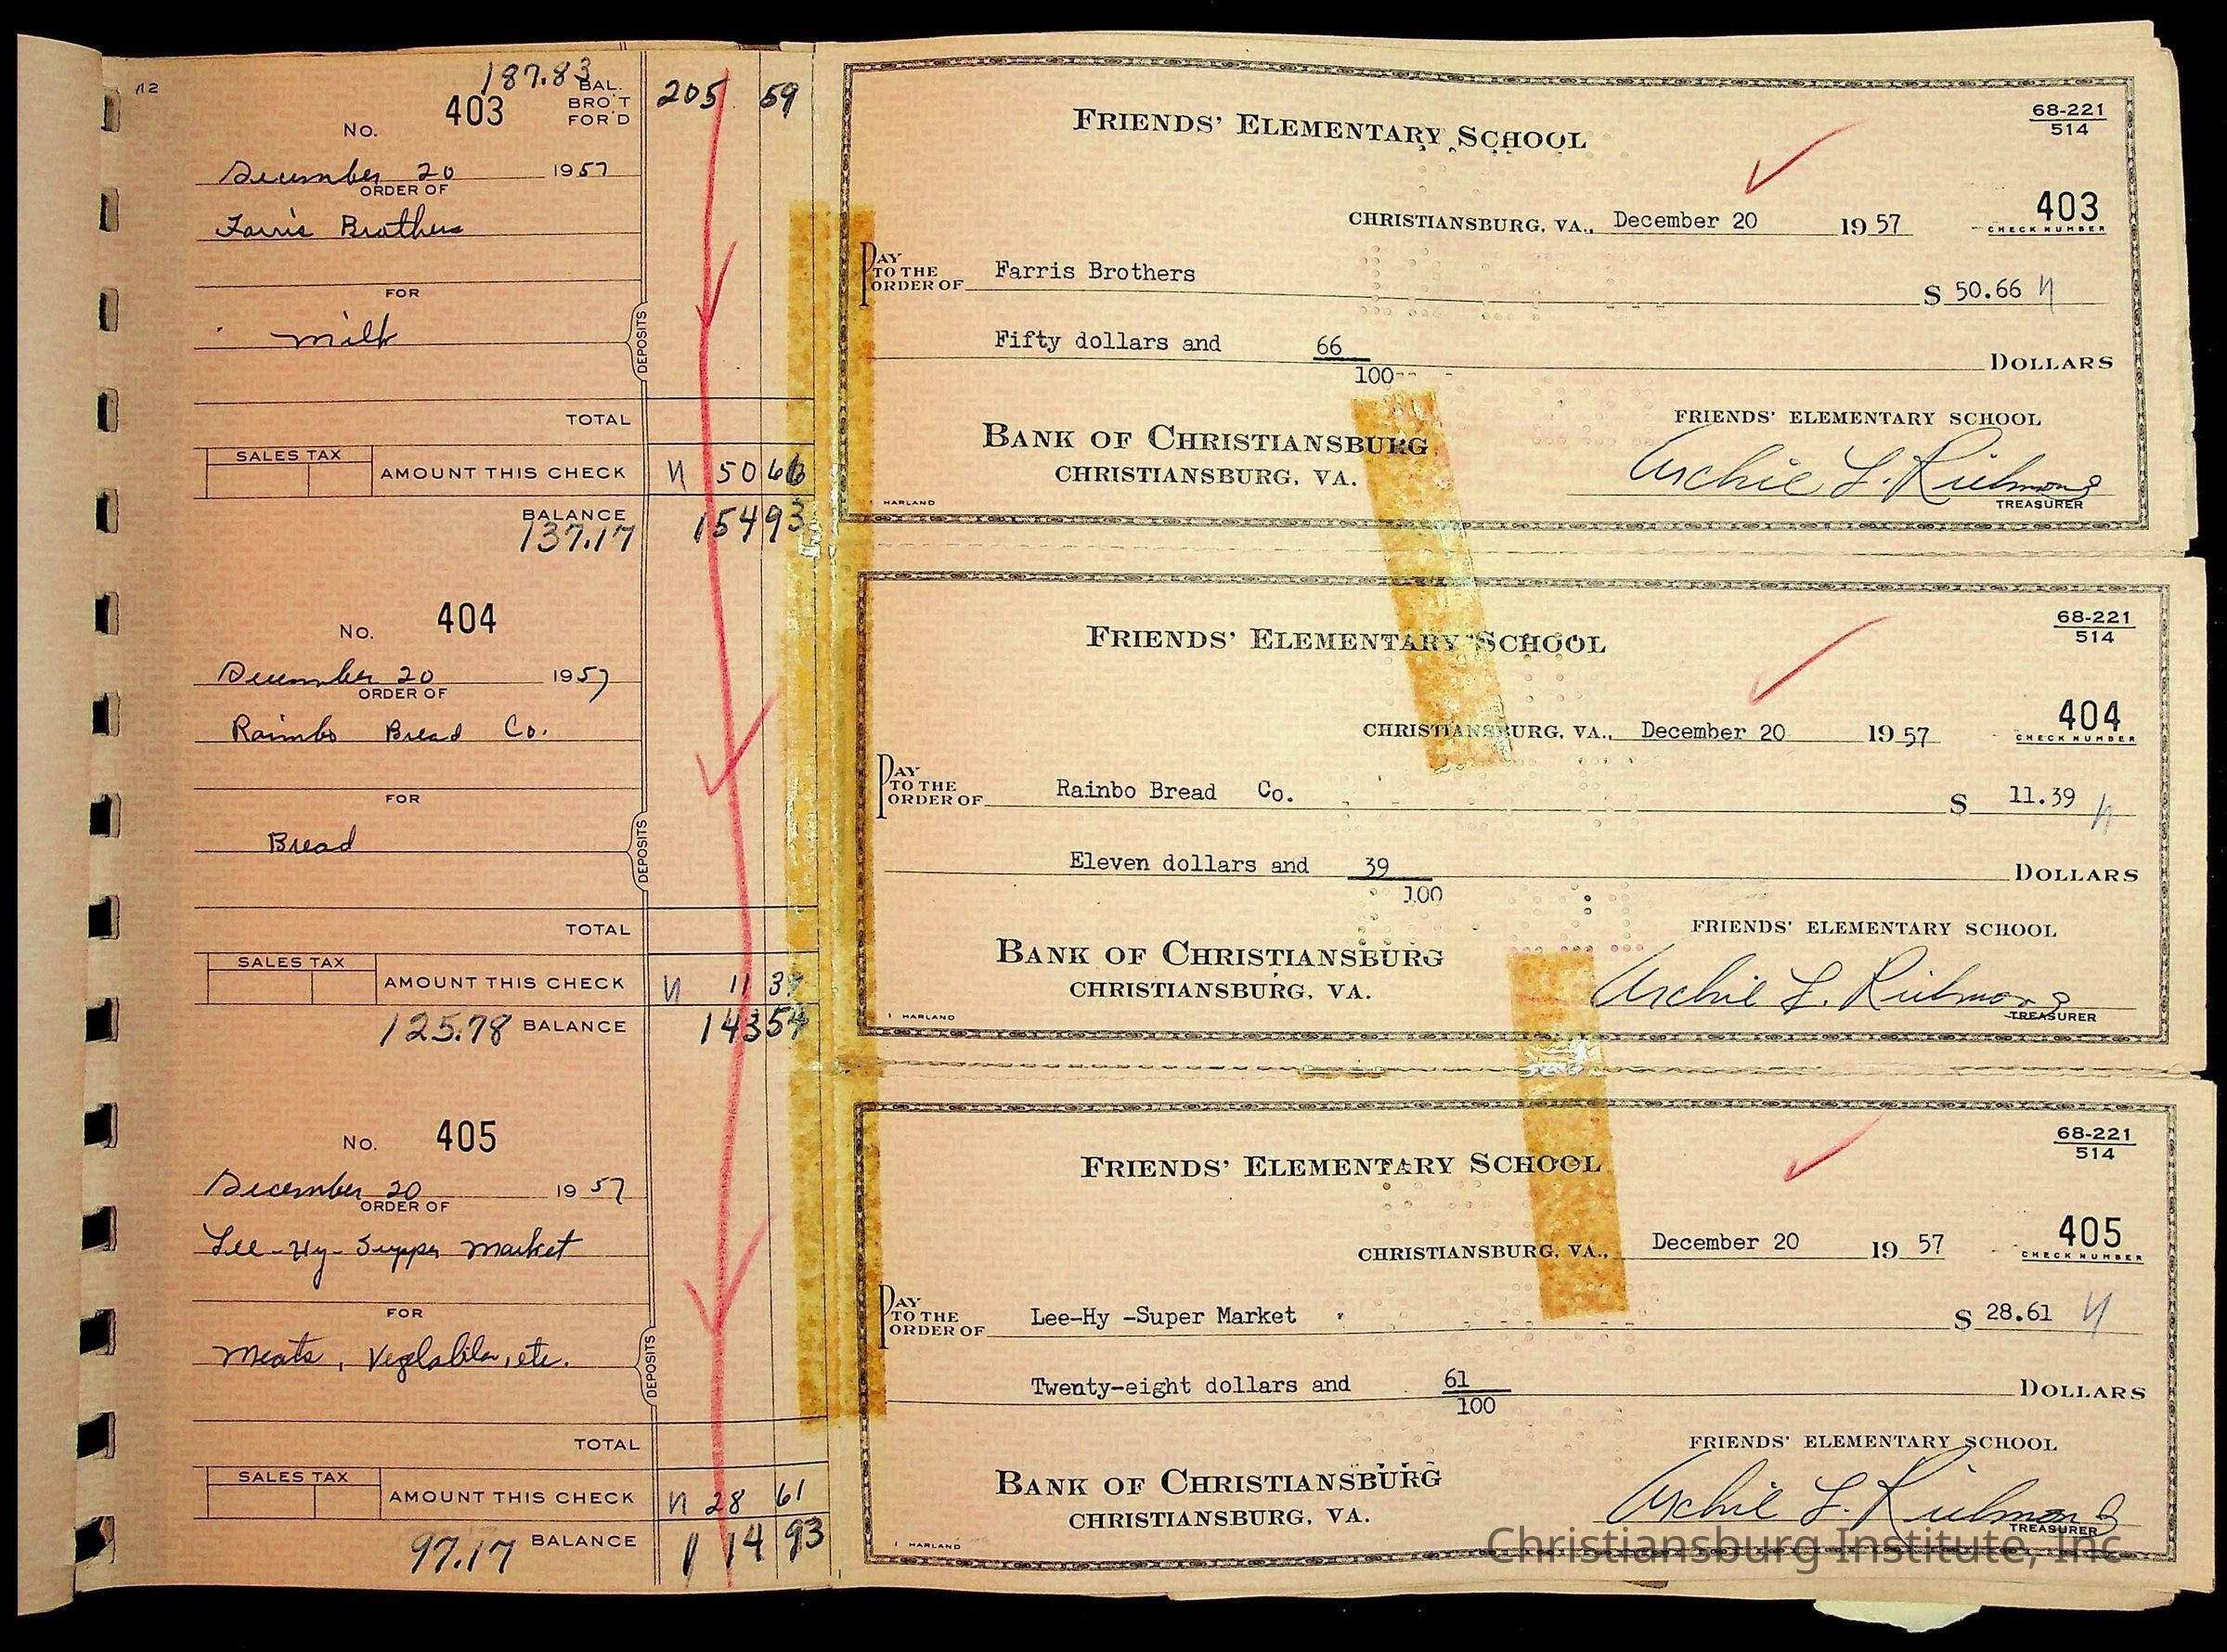 112
187.83
BAL.
BRO'T
FOR'D
205 59
No. 403
December 20 1957
ORDER OF
Farris Brothers
FOR
milk
DEPOSITS
TOTAL
SALES TAX
AMOUNT THIS CHECK
N 50 66
BALANCE
137.17
154 93
No. 404
December 20 1957
ORDER OF
Rainbo Bread Co.
FOR
Bread
DEPOSITS
TOTAL
SALES TAX
AMOUNT THIS CHECK
N 11 39
125.78 BALANCE
143 54
No. 405
December 20 1957
ORDER OF
Lee-Hy-Supper Market
FOR
Meats, Vegtables, etc.
DEPOSITS
TOTAL
SALES TAX
AMOUNT THIS CHECK
N 28 61
97.17 BALANCE
114 93
FRIENDS' ELEMENTARY SCHOOL
68-221
514
CHRISTIANSBURG, VA., December 20 1957
403
CHECK NUMBER
PAY
TO THE
ORDER OF Farris Brothers $ 50.66 N
Fifty dollars and 66
100-- - DOLLARS
BANK OF CHRISTIANSBURG
CHRISTIANSBURG, VA.
HARLAND
FRIENDS' ELEMENTARY SCHOOL
Archie L. Richmond
TREASURER
FRIENDS' ELEMENTARY SCHOOL
68-221
514
CHRISTIANSBURG, VA., December 20 1957
404
CHECK NUMBER
PAY
TO THE
ORDER OF Rainbo Bread Co. $ 11.39 N
Eleven dollars and 39
100 DOLLARS
BANK OF CHRISTIANSBURG
CHRISTIANSBURG, VA.
HARLAND
FRIENDS' ELEMENTARY SCHOOL
Archie L. Richmond
TREASURER
FRIENDS' ELEMENTARY SCHOOL
68-221
514
CHRISTIANSBURG, VA., December 20 1957
405
CHECK NUMBER
PAY
TO THE
ORDER OF Lee-Hy -Super Market $ 28.61 N
Twenty-eight dollars and 61
100 DOLLARS
BANK OF CHRISTIANSBURG
CHRISTIANSBURG, VA.
HARLAND
FRIENDS' ELEMENTARY SCHOOL
Archie L. Richmond
TREASURER
Christiansburg Institute, Inc